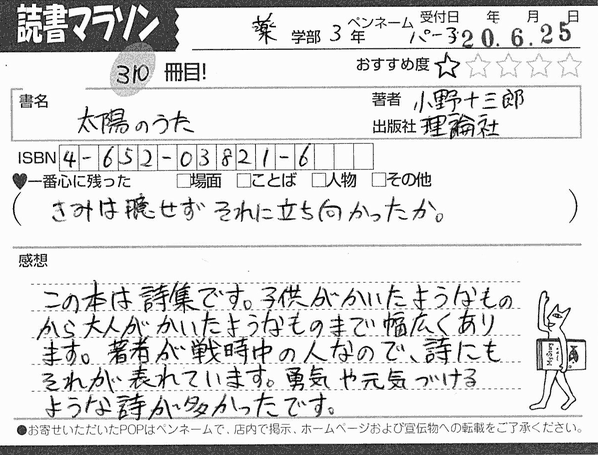 読書マラソン
薬 学部 3 年 ペンネーム パー子 受付日 年 月 日 20.6.25
310 冊目!
おすすめ度 ★☆☆☆☆
書名 太陽のうた
著者 小野十三郎
出版社 理論社
ISBN 4-652-03821-6
♥一番心に残った □場面 □ことば □人物 □その他
(きみは臆せず それに立ち向かったか。)
感想
この本は詩集です。子供がかいたようなもの
から大人がかいたようなものまで幅広くあり
ます。著者が戦時中の人なので、詩にも
それが表れています。勇気や元気づける
ような詩が多かったです。
●お寄せいただいたPOPはペンネームで、店内で掲示、ホームページおよび宣伝物への転載をご了承ください。